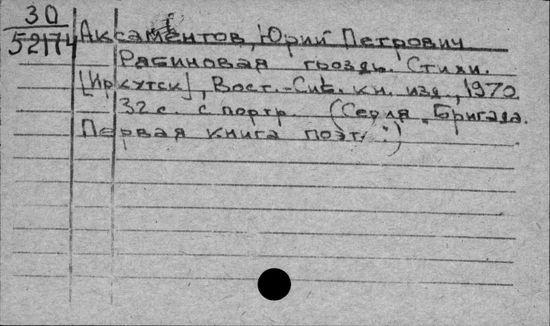 30
52174
Аксаментов, Юрий Петрович
Рябиновая гроздь. Стихи.
[Иркутск], Вост.-Сиб. кн. изд., 1970
32 с. с портр. (Серия „Бригада.
Первая книга поэта“)